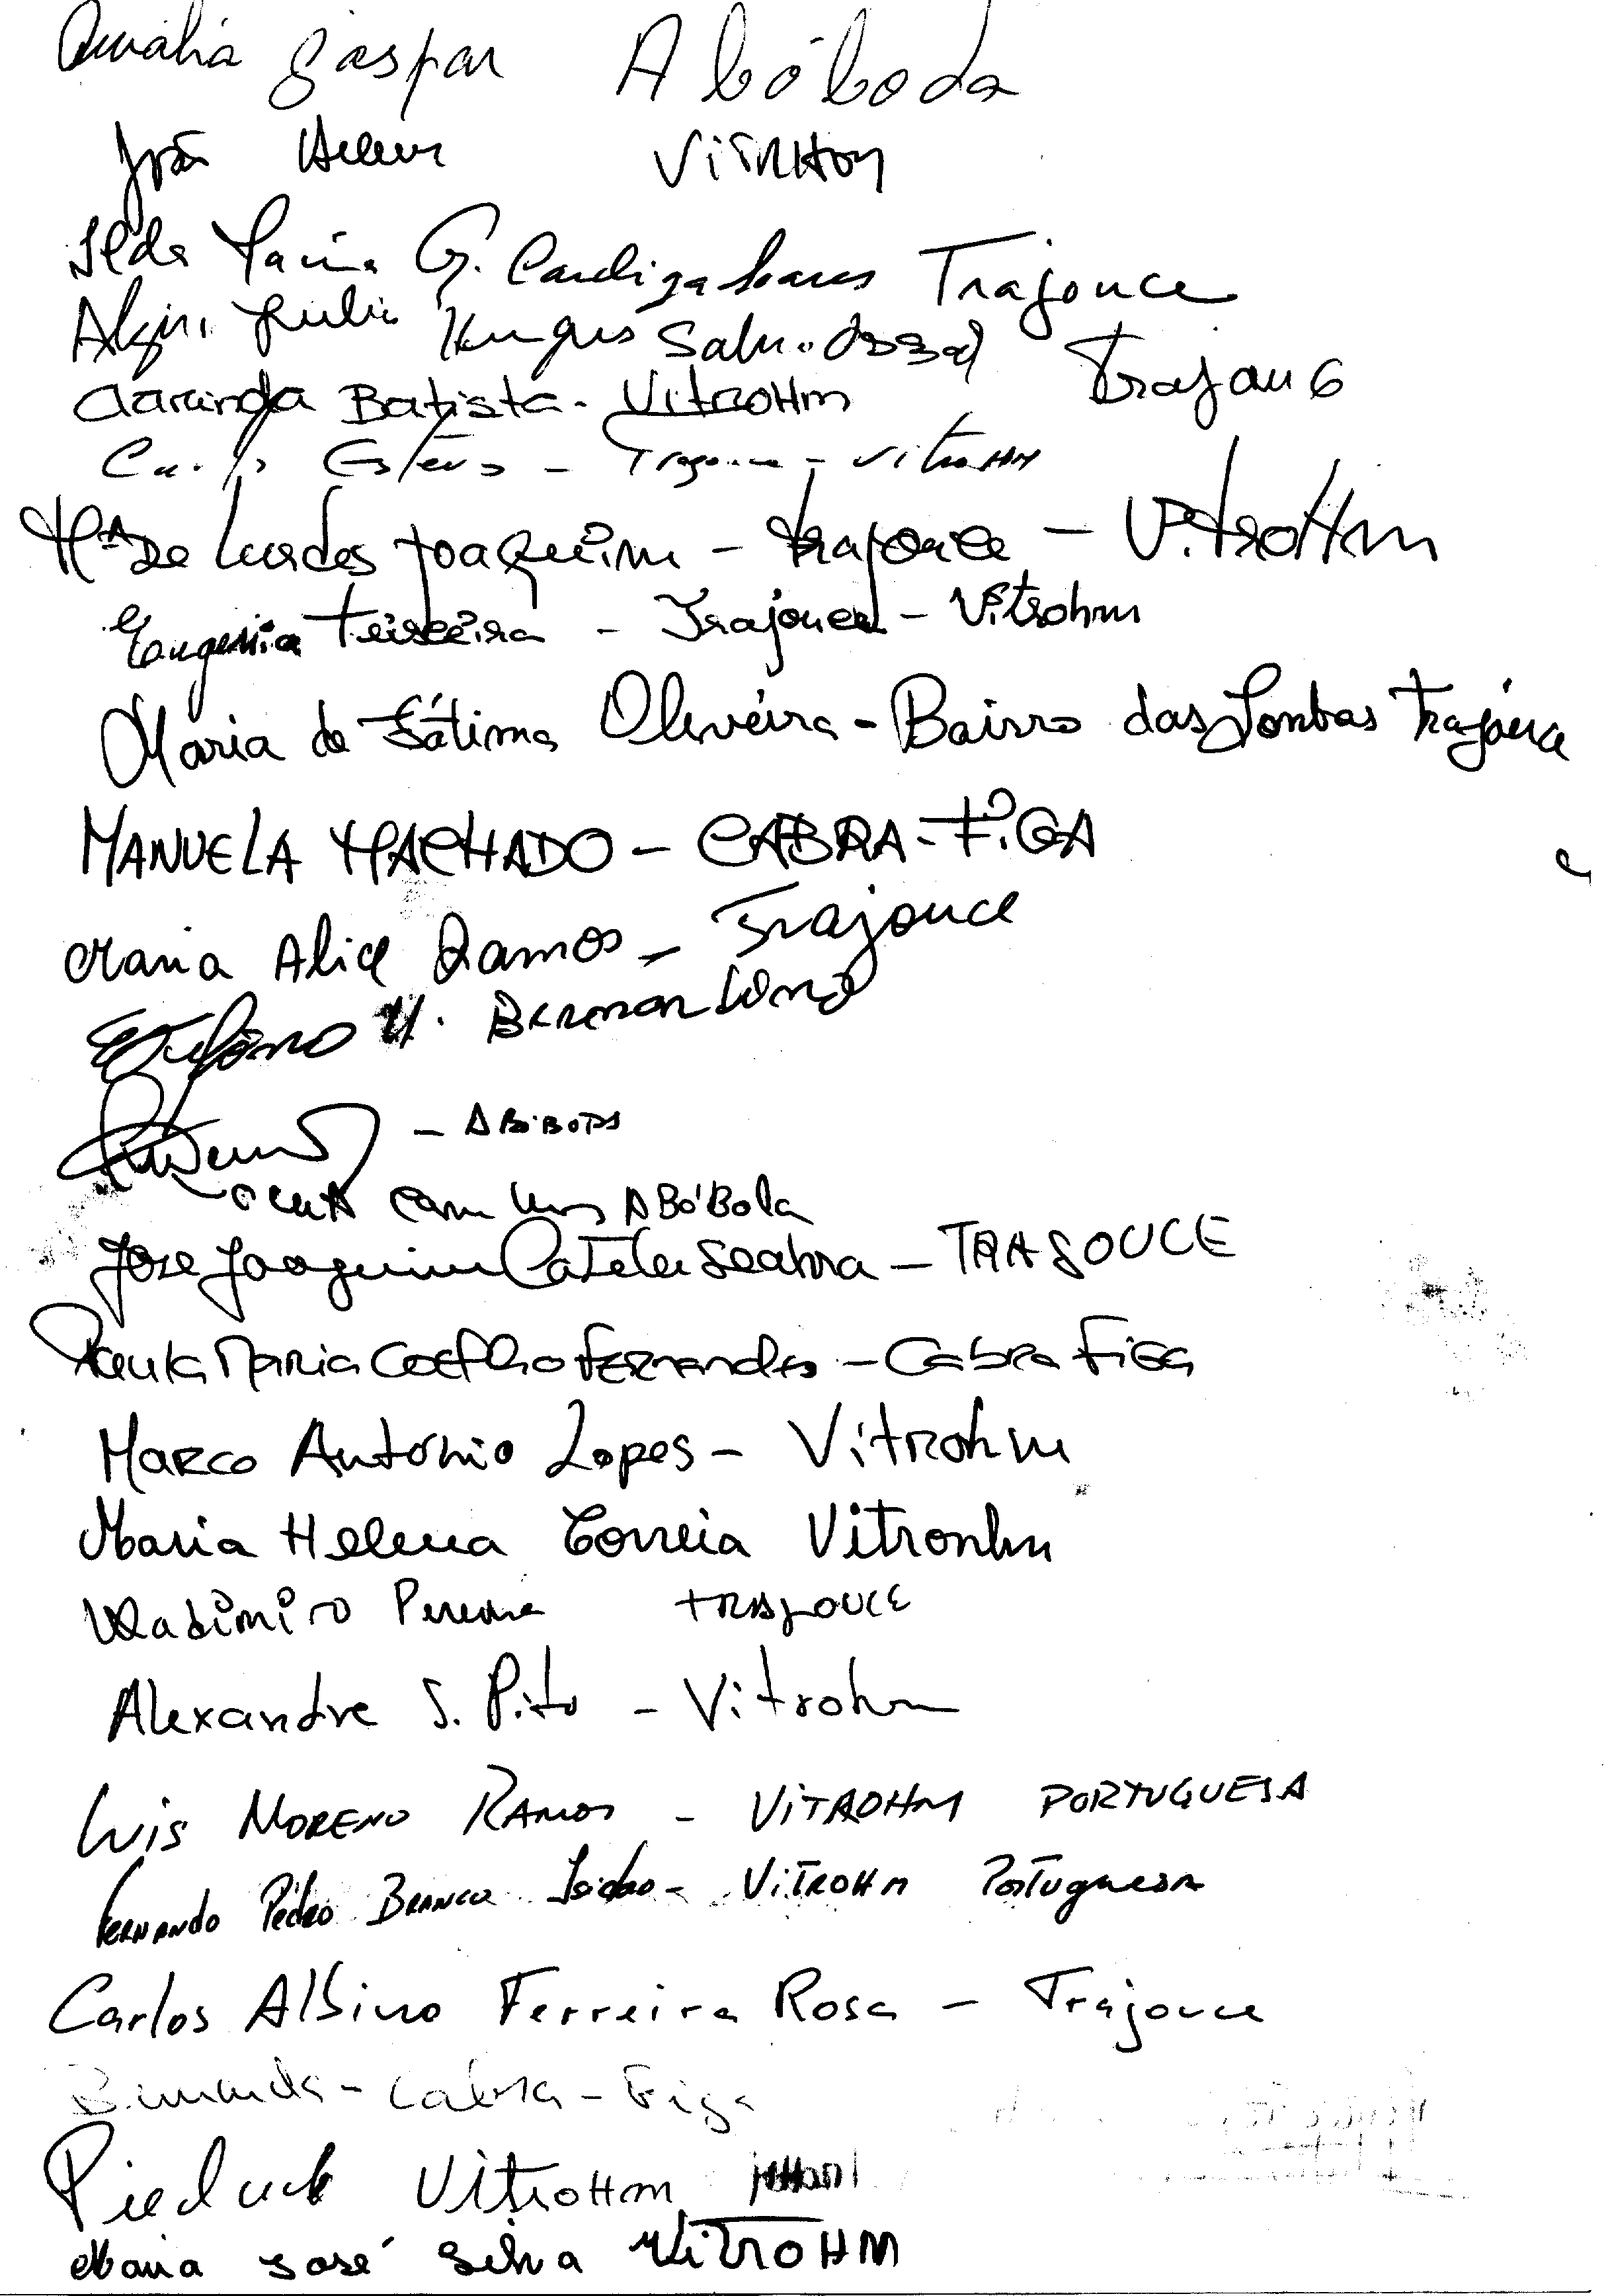 Amália Gaspar Abóboda
João VITRHOM
Ilda Maria G. Cardiga Soares Trajouce
Júlia
Batista - VitroHm
Esteves - Trajouce - VitroHM
Mª De Lurdes Joaquim - trajouce - VitroHm
Eugenia Teixeira - Trajouce - Vitrohm
Maria de Fátima Oliveira - Bairro das Lombas Trajouce
MANUELA MACHADO - CABRA-FIGA
Maria Alice Ramos - Trajouce
M. Bernardino
- ABOBODA
ABóBoda
José Joaquim Seabra - TRAJOUCE
Paula Maria Coelho Fernandes - Cabra Figa
Marco António Lopes - Vitrohm
Maria Helena Correia Vitronhm
Vladimiro Pereira TRAJOUCE
Alexandre S. Pito - Vitrohm
Luis MORENO RAMOS - VITROHM PORTUGUESA
Fernando Pedro Branco Isidro - VITROHM Portuguesa
Carlos Albino Ferreira Rosa - Trajouce
- Cabra - Figa
VitroHm
Maria José Silva VitroHM